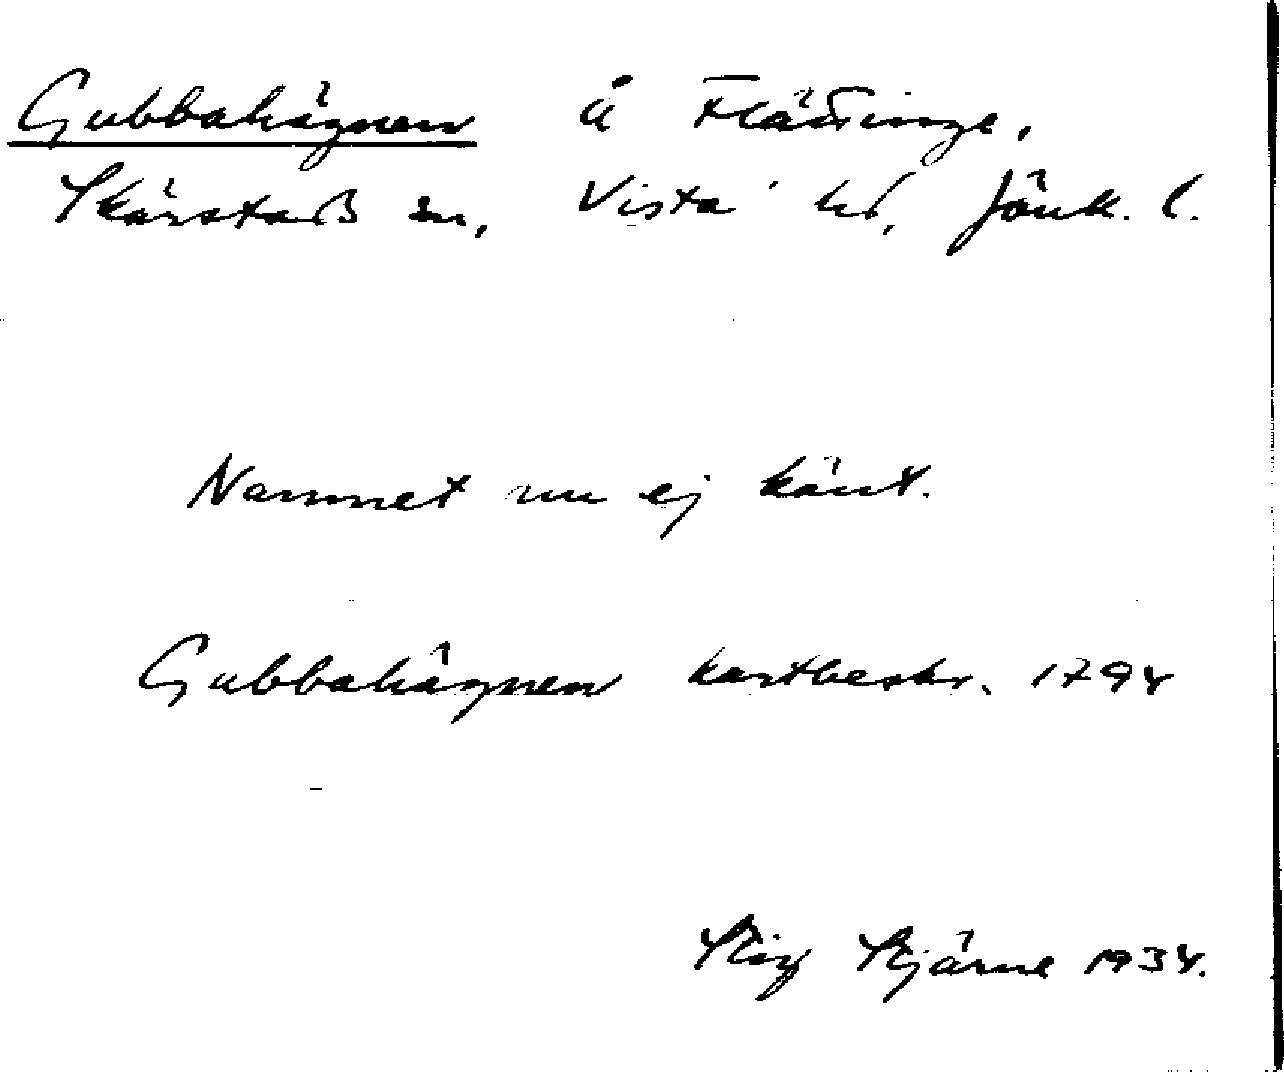 Gubbahägnen å Flättinge,
Skärstads sn, Vista hd, Jönk. l.
Namnet nu ej känt.
Gubbahägnen kartbeskr. 1794
Stig Stjärne 1934.